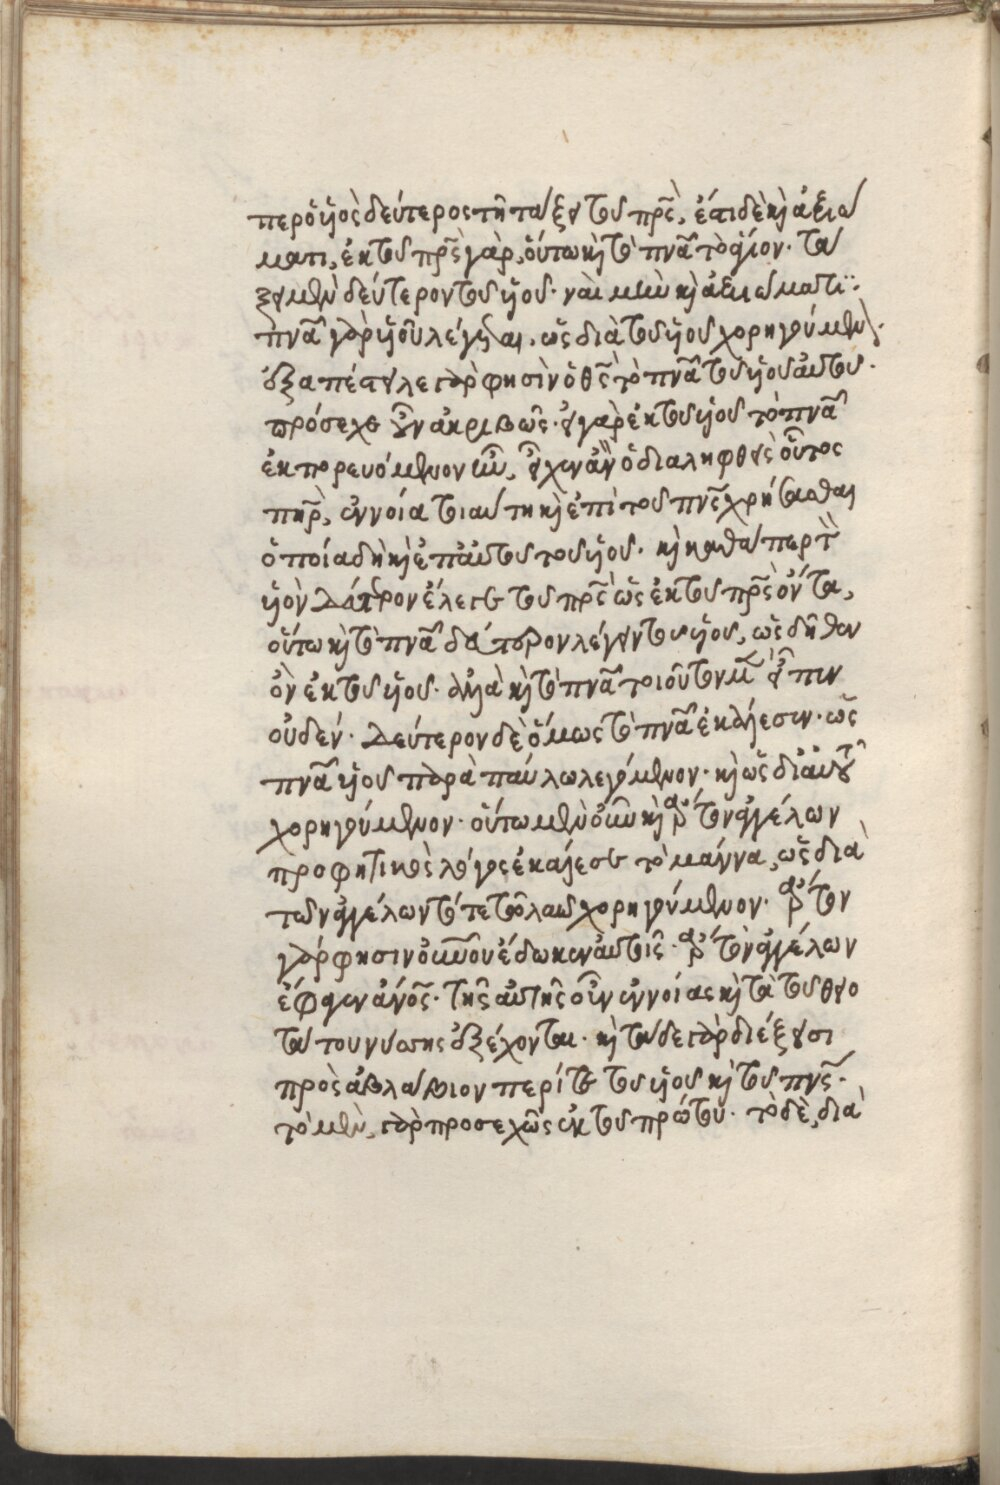 περ ὁ υἱὸς δεύτερος τῆ τάξει τοῦ πρς̅, ἔτι δὲ κὶ ἀξιώ
ματι, ἐκ τοῦ πρς̅ γὰρ, οὕτω κὶ τὸ πνα̅ τὸ ἅγιον· τά
ξει μὲν δεύτερον τοῦ υἱοῦ· ναὶ μὴν κὶ ἀξιώματι:
πνα̅ γὰρ υἱοῦ λέγεται, ὡς διὰ τοῦ υἱοῦ χορηγούμενον·
ἐξαπέστειλε γὰρ φησὶν ὁ θς̅ τὸ πνα̅ τοῦ υἱοῦ αὐτοῦ·
πρόσεχε οὖν ἀκριβῶς· εἰ γὰρ ἐκ τοῦ υἱοῦ τὸ πνα̅
ἐκπορευόμενον ἦν, εἶχεν ἂν ὁ διαληφθεὶς οὗτος
πηρ̅, ἐννοία τιαύτη κὶ ἐπὶ τοῦ πνς̅ χρήσασθαι
ὁποία δὴ κὶ ἐπ' αὐτοῦ τοῦ υἱοῦ· κὶ καθάπερ τὸν
υἱὸν δεύτερον ἔλεγε τοῦ πρς̅ ὡς ἐκ τοῦ πρς̅ ὄντα,
οὕτω κὶ τὸ πνα̅ δεύτερον λέγειν τοῦ υἱοῦ, ὡς δῆθεν
ὂν ἐκ τοῦ υἱοῦ· ἀλλὰ κὶ τὸ πνα̅ τοιοῦτον μ̅ εἶπεν
οὐδέν· δεύτερον δὲ ὅμως τὸ πνα̅ ἐκάλεσεν· ὡς
πνα̅ υἱοῦ παρὰ παύλω λεγόμενον· κὶ ὡς δι' αὐτοῦ
χορηγούμενον· οὕτω μὲν οὖν κὶ ἄρτον ἀγγέλων
προφητικὸς λόγος ἐκάλεσε τὸ μάννα, ὡς διὰ
τῶν ἀγγέλων τότε τῶ λαῶ χορηγούμενον· ἄρτον
γάρ φησιν οὐνου ἔδωκεν αὐτοῖς· ἄρτον ἀγγέλων
ἔφαγεν ἄνος̅· τῆς αὐτῆς οὖν ἐννοίας κὶ τὰ τοῦ θειο
τάτου νύσης ἐξέχονται· κὶ τάδε γὰρ διέξεισι
πρὸς ἀβλάβιον περί τε τοῦ υἱοῦ κὶ τοῦ πνς̅·
τὸ μὲν, γὰρ προσεχῶς ἐκ τοῦ πρώτου· τὸ δὲ, διὰ